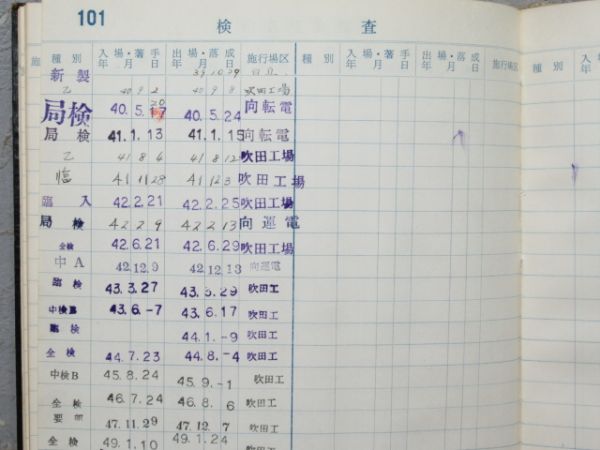 101 検 査
種別 入場・著手 年月日 出場・落成 年月日 施行場区 種別 入場・著手 年月日 出場・落成 年月日 施行場区 種別 入 年
新製 39 10 29 日立
乙 40 9 2 40 9 8 吹田工場
局検 40.5.17 20 40.5.24 向転電
局検 41.1.13 41.1.15 向転電
乙 41 8 6 41 8 12 吹田工場
臨 41 11 28 41 12 3 吹田工場
臨入 42.2.21 42.2.25 吹田工場
局検 42 2 9 42 2 13 向運電
全検 42.6.21 42.6.29 吹田工場
中A 42.12.9 42.12.13 向運電
臨検 43.3.27 43.3.29 吹田工
中検B 43.6.-7 43.6.17 吹田工
臨検 44.1.-9 吹田工
全検 44.7.23 44.8.-4 吹田工
中検B 45.8.24 45.9.-1 吹田工
全検 46.7.24 46.8.6 吹田工
要部 47.11.29 47.12.7 吹田工
全検 49.1.10 49.1.24 吹田工